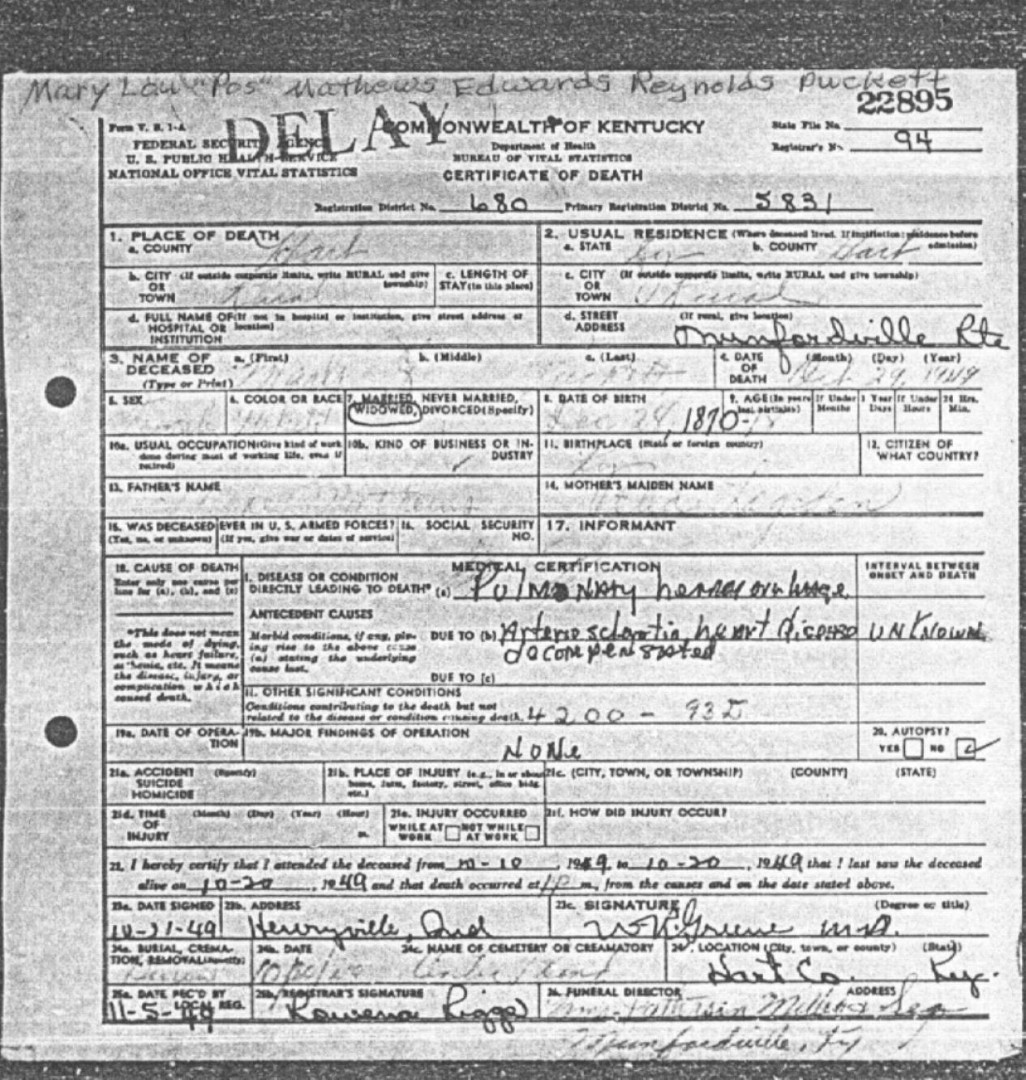 Mary Lou "Pos" Mathews Edwards Reynolds Puckett
22895
DELAY
Form V. S. 1-A
FEDERAL SECURITY AGENCY
U. S. PUBLIC HEALTH SERVICE
NATIONAL OFFICE VITAL STATISTICS
COMMONWEALTH OF KENTUCKY
Department of Health
BUREAU OF VITAL STATISTICS
CERTIFICATE OF DEATH
State File No.
Registrar's No. 94
Registration District No. 680 Primary Registration District No. 5831
1. PLACE OF DEATH
a. COUNTY Hart
2. USUAL RESIDENCE (Where deceased lived. If institution: residence before admission)
a. STATE Ky b. COUNTY Hart
b. CITY (If outside corporate limits, write RURAL and give township) OR TOWN Rural
c. LENGTH OF STAY (in this place)
c. CITY (If outside corporate limits, write RURAL and give township) OR TOWN Rural
d. FULL NAME OF (If not in hospital or institution, give street address or location) HOSPITAL OR INSTITUTION
d. STREET ADDRESS (If rural, give location) Munfordville Rte
3. NAME OF DECEASED (Type or Print) a. (First) b. (Middle) c. (Last)
4. DATE OF DEATH (Month) (Day) (Year) 29, 1949
5. SEX
6. COLOR OR RACE
7. MARRIED, NEVER MARRIED, WIDOWED, DIVORCED (Specify)
8. DATE OF BIRTH Dec 24, 1870
9. AGE (In years last birthday) If Under 1 Year Months Days If Under 24 Hrs. Hours Min.
10a. USUAL OCCUPATION (Give kind of work done during most of working life, even if retired)
10b. KIND OF BUSINESS OR INDUSTRY
11. BIRTHPLACE (State or foreign country) Ky
12. CITIZEN OF WHAT COUNTRY?
13. FATHER'S NAME
14. MOTHER'S MAIDEN NAME
15. WAS DECEASED EVER IN U. S. ARMED FORCES? (Yes, no, or unknown) (If yes, give war or dates of service)
16. SOCIAL SECURITY NO.
17. INFORMANT
18. CAUSE OF DEATH
Enter only one cause per line for (a), (b), and (c)
*This does not mean the mode of dying, such as heart failure, asthenia, etc. It means the disease, injury, or complication which caused death.
MEDICAL CERTIFICATION
INTERVAL BETWEEN ONSET AND DEATH
I. DISEASE OR CONDITION DIRECTLY LEADING TO DEATH* (a) Pulmonary hemorrhage
ANTECEDENT CAUSES
Morbid conditions, if any, giving rise to the above cause (a) stating the underlying cause last.
DUE TO (b) Arterio sclerotic heart disease UNKNOWN
decompensated
DUE TO (c)
II. OTHER SIGNIFICANT CONDITIONS
Conditions contributing to the death but not related to the disease or condition causing death. 4200 - 93D
19a. DATE OF OPERATION
19b. MAJOR FINDINGS OF OPERATION
None
20. AUTOPSY?
YES NO
21a. ACCIDENT SUICIDE HOMICIDE (Specify)
21b. PLACE OF INJURY (e.g., in or about home, farm, factory, street, office bldg. etc.)
21c. (CITY, TOWN, OR TOWNSHIP) (COUNTY) (STATE)
21d. TIME OF INJURY (Month) (Day) (Year) (Hour) m.
21e. INJURY OCCURRED
WHILE AT WORK NOT WHILE AT WORK
21f. HOW DID INJURY OCCUR?
22. I hereby certify that I attended the deceased from 10-10, 1949 to 10-20, 1949 that I last saw the deceased
alive on 10-20, 1949 and that death occurred at 1 p m., from the causes and on the date stated above.
23a. DATE SIGNED 10-21-49
23b. ADDRESS Henryville, Ind
23c. SIGNATURE (Degree or title) Greene M.D.
24a. BURIAL, CREMATION, REMOVAL (Specify)
24b. DATE
24c. NAME OF CEMETERY OR CREAMATORY
24d. LOCATION (City, town, or county) (State) Hart Co. Ky.
25a. DATE REC'D BY LOCAL REG. 11-5-49
25b. REGISTRAR'S SIGNATURE Rowena Riggs
26. FUNERAL DIRECTOR ADDRESS
Munfordville, Ky